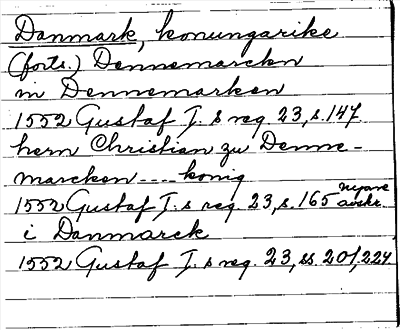 Danmark, konungarike
(forts.) Dennemarckn
in Dennemarcken
1552 Gustaf I. s reg. 23, s. 147.
hern Christian zu Denne-
marcken .... konig
1552 Gustaf I. s reg. 23, s. 165 nyare avskr.
i Danmarck
1552 Gustaf I. s reg. 23, ss. 201, 224